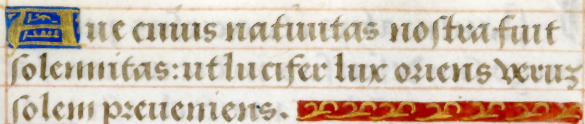 Aue cuius natiuitas nostra fuit
solennitas: ut lucifer lux oriens verus
solem preueniens.